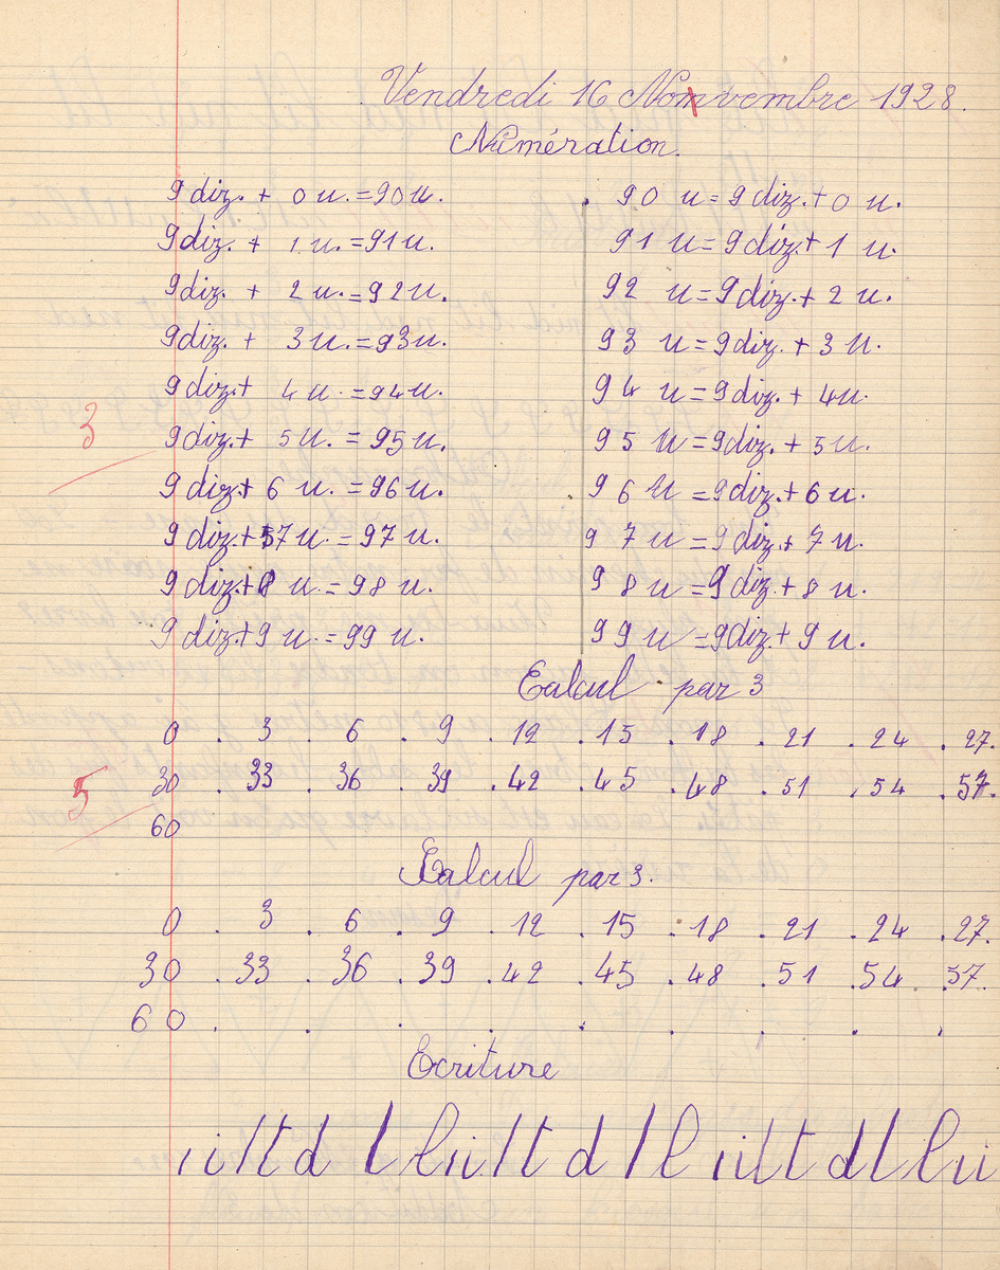 Vendredi 16 Nonvembre 1928.
Numération.
9 diz. + 0 u. = 90 u. 90 u = 9 diz. + 0 u.
9 diz. + 1 u. = 91 u. 91 u = 9 diz. + 1 u.
9 diz. + 2 u. = 92 u. 92 u = 9 diz. + 2 u.
9 diz. + 3 u. = 93 u. 93 u = 9 diz. + 3 u.
9 diz. + 4 u. = 94 u. 94 u = 9 diz. + 4 u.
3
9 diz. + 5 u. = 95 u. 95 u = 9 diz. + 5 u.
9 diz. + 6 u. = 96 u. 96 u = 9 diz. + 6 u.
9 diz. + 7 u. = 97 u. 97 u = 9 diz. + 7 u.
9 diz. + 8 u. = 98 u. 98 u = 9 diz. + 8 u.
9 diz. + 9 u. = 99 u. 99 u = 9 diz. + 9 u.
Calcul par 3
0 . 3 . 6 . 9 . 12 . 15 . 18 . 21 . 24 . 27.
5
30 . 33 . 36 . 39 . 42 . 45 . 48 . 51 . 54 . 57.
60
Calcul par 3.
0 . 3 . 6 . 9 . 12 . 15 . 18 . 21 . 24 . 27.
30 . 33 . 36 . 39 . 42 . 45 . 48 . 51 . 54 . 57.
60 . . . . . . . . .
Ecriture